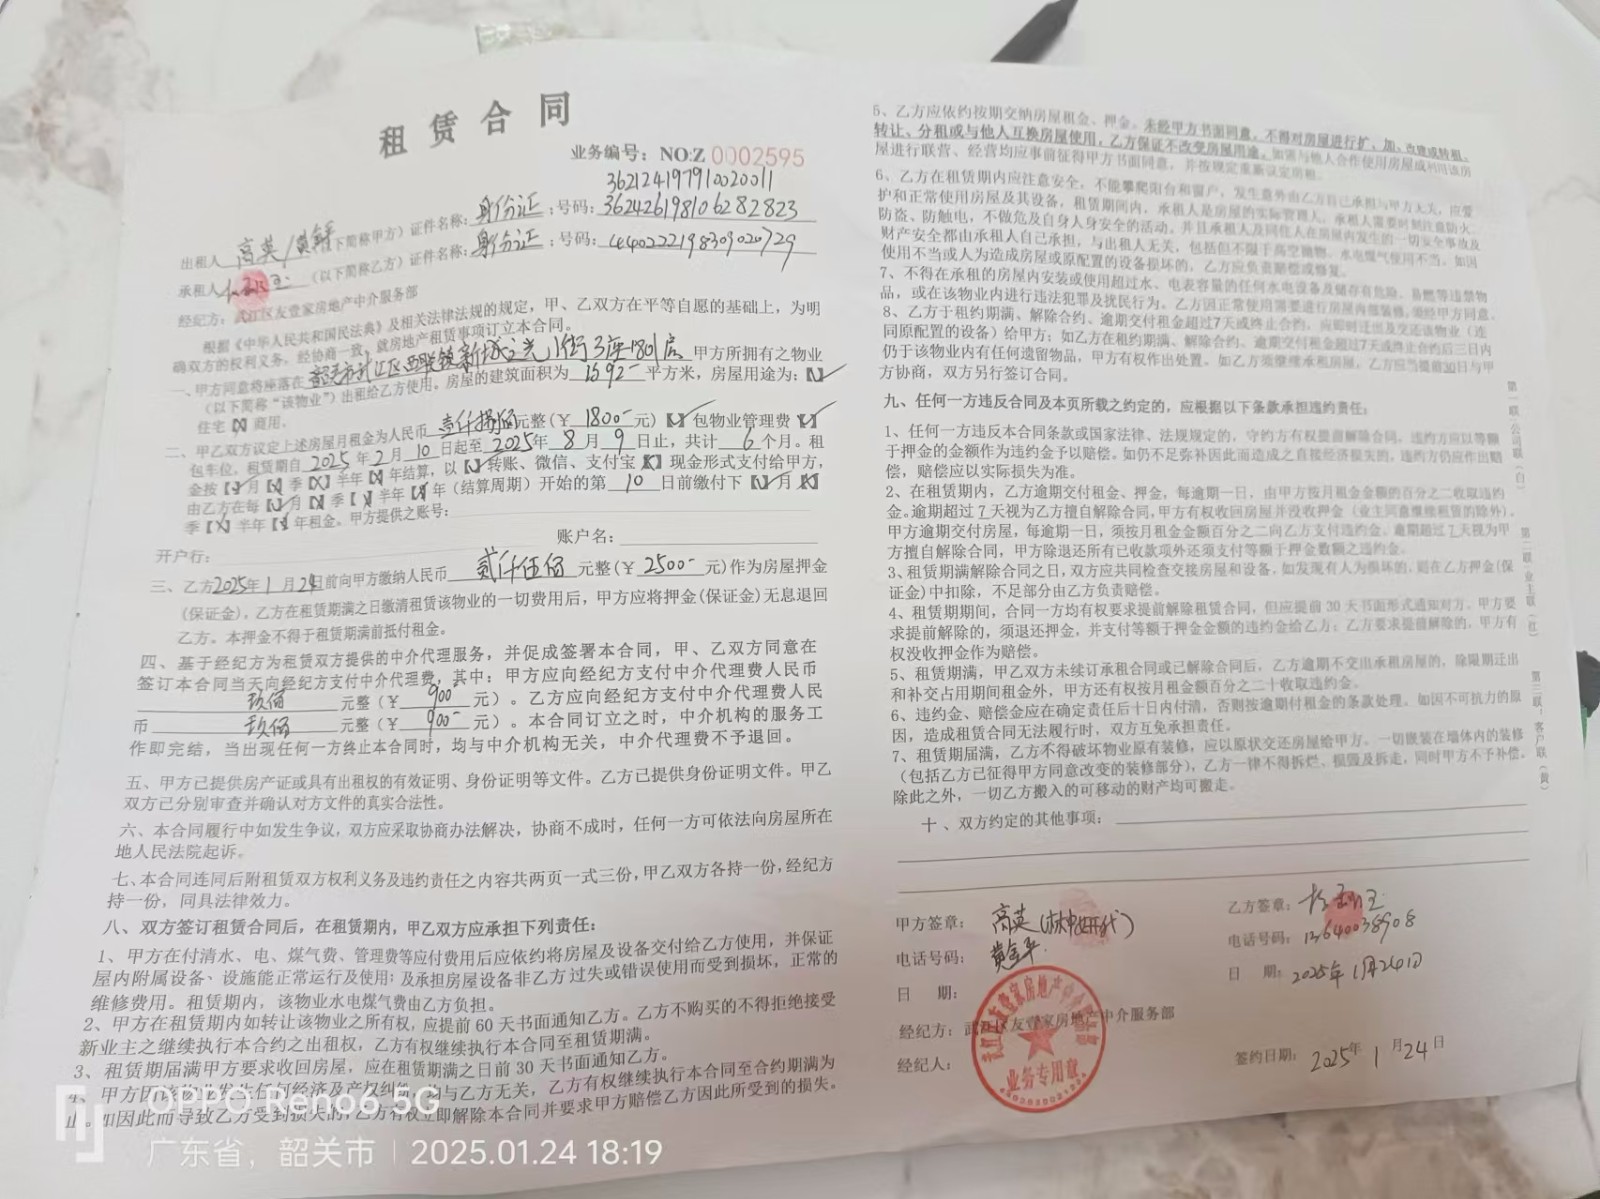 租赁合同
业务编号：NO:Z 0002595
362124197910020011
出租人 高英/黄 （以下简称甲方）证件名称：身份证；号码：362426198106282823
承租人 （以下简称乙方）证件名称：身份证；号码：440222198309020729
经纪方：武江区友壹家房地产中介服务部
根据《中华人民共和国民法典》及相关法律法规的规定，甲、乙双方在平等自愿的基础上，为明
确双方的权利义务，经协商一致，就房地产租赁事项订立本合同。
一、甲方同意将座落在 韶关市武江区西联镇新城之光1街3座 甲方所拥有之物业
（以下简称“该物业”）出租给乙方使用。房屋的建筑面积为 平方米，房屋用途为：【√】
住宅【X】商用。
二、甲乙双方议定上述房屋月租金为人民币 壹仟捌佰元整（￥ 1800- 元）【√】包物业管理费【√】
包车位，租赁期自 2025 年 2 月 10 日起至 2025年 8 月 9 日止，共计 6 个月。租
金按【√】月【X】季【X】半年【X】年结算，以【√】转账、微信、支付宝【X】现金形式支付给甲方，
由乙方在每【√】月【X】季【X】半年【X】年（结算周期）开始的第 10 日前缴付下【√】月【X】
季【X】半年【X】年租金。甲方提供之账号：
开户行： 账户名：
三、乙方2025年1月24日前向甲方缴纳人民币 贰仟伍佰 元整（￥ 2500- 元）作为房屋押金
（保证金），乙方在租赁期满之日缴清租赁该物业的一切费用后，甲方应将押金(保证金)无息退回
乙方。本押金不得于租赁期满前抵付租金。
四、基于经纪方为租赁双方提供的中介代理服务，并促成签署本合同，甲、乙双方同意在
签订本合同当天向经纪方支付中介代理费，其中：甲方应向经纪方支付中介代理费人民币
玖佰 元整（￥ 900- 元）。乙方应向经纪方支付中介代理费人民
币 玖佰 元整（￥ 900- 元）。本合同订立之时，中介机构的服务工
作即完结，当出现任何一方终止本合同时，均与中介机构无关，中介代理费不予退回。
五、甲方已提供房产证或具有出租权的有效证明、身份证明等文件。乙方已提供身份证明文件。甲乙
双方已分别审查并确认对方文件的真实合法性。
六、本合同履行中如发生争议，双方应采取协商办法解决，协商不成时，任何一方可依法向房屋所在
地人民法院起诉。
七、本合同连同后附租赁双方权利义务及违约责任之内容共两页一式三份，甲乙双方各持一份，经纪方
持一份，同具法律效力。
八、双方签订租赁合同后，在租赁期内，甲乙双方应承担下列责任：
1、甲方在付清水、电、煤气费、管理费等应付费用后应依约将房屋及设备交付给乙方使用，并保证
屋内附属设备、设施能正常运行及使用；及承担房屋设备非乙方过失或错误使用而受到损坏，正常的
维修费用。租赁期内，该物业水电煤气费由乙方负担。
2、甲方在租赁期内如转让该物业之所有权，应提前60天书面通知乙方。乙方不购买的不得拒绝接受
新业主之继续执行本合约之出租权，乙方有权继续执行本合同至租赁期满。
3、租赁期届满甲方要求收回房屋，应在租赁期满之日前30天书面通知乙方。
4、甲方因该物业发生任何经济及产权纠纷，均与乙方无关，乙方有权继续执行本合同至合约期满为
止。如因此而导致乙方受到损失的，乙方有权立即解除本合同并要求甲方赔偿乙方因此所受到的损失。
5、乙方应依约按期交纳房屋租金、押金。未经甲方书面同意，不得对房屋进行扩、加、改建或转租、
转让、分租或与他人互换房屋使用，乙方保证不改变房屋用途。如需与他人合作使用房屋或利用该房
屋进行联营、经营均应事前征得甲方书面同意，并按规定重新议定房租。
6、乙方在租赁期内应注意安全，不能攀爬阳台和窗户，发生意外由乙方自己承担与甲方无关，应爱
护和正常使用房屋及其设备，租赁期间内，承租人是房屋的实际管理人，承租人需要时刻注意防火、
防盗、防触电，不做危及自身人身安全的活动，并且承租人及同住人在房屋内发生的一切安全事故及
财产安全都由承租人自己承担，与出租人无关，包括但不限于高空抛物、水电煤气使用不当。如因
使用不当或人为造成房屋或原配置的设备损坏的，乙方应负责赔偿或修复。
7、不得在承租的房屋内安装或使用超过水、电表容量的任何水电设备及储存有危险、易燃等违禁物
品，或在该物业内进行违法犯罪及扰民行为。乙方因正常使用需要进行房屋内部装修，须经甲方同意。
8、乙方于租约期满、解除合约、逾期交付租金超过7天或终止合约，应即时迁出及交还该物业（连
同原配置的设备）给甲方；如乙方在租约期满、解除合约、逾期交付租金超过7天或终止合约后三日内
仍于该物业内有任何遗留物品，甲方有权作出处置。如乙方须继续承租房屋，乙方应当提前30日与甲
方协商，双方另行签订合同。
九、任何一方违反合同及本页所载之约定的，应根据以下条款承担违约责任：
1、任何一方违反本合同条款或国家法律、法规规定的，守约方有权提前解除合同。违约方应以等额
于押金的金额作为违约金予以赔偿。如仍不足弥补因此而造成之直接经济损失的，违约方仍应作出赔
偿，赔偿应以实际损失为准。
2、在租赁期内，乙方逾期交付租金、押金，每逾期一日，由甲方按月租金金额的百分之二收取违约
金。逾期超过7天视为乙方擅自解除合同，甲方有权收回房屋并没收押金（业主同意继续租赁的除外）。
甲方逾期交付房屋，每逾期一日，须按月租金金额百分之二向乙方支付违约金。逾期超过7天视为甲
方擅自解除合同，甲方除退还所有已收款项外还须支付等额于押金数额之违约金。
3、租赁期满解除合同之日，双方应共同检查交接房屋和设备，如发现有人为损坏的，则在乙方押金(保
证金)中扣除，不足部分由乙方负责赔偿。
4、租赁期期间，合同一方均有权要求提前解除租赁合同，但应提前30天书面形式通知对方。甲方要
求提前解除的，须退还押金，并支付等额于押金金额的违约金给乙方；乙方要求提前解除的，甲方有
权没收押金作为赔偿。
5、租赁期满，甲乙双方未续订承租合同或已解除合同后，乙方逾期不交出承租房屋的，除限期迁出
和补交占用期间租金外，甲方还有权按月租金额百分之二十收取违约金。
6、违约金、赔偿金应在确定责任后十日内付清，否则按逾期付租金的条款处理。如因不可抗力的原
因，造成租赁合同无法履行时，双方互免承担责任。
7、租赁期届满，乙方不得破坏物业原有装修，应以原状交还房屋给甲方。一切嵌装在墙体内的装修
（包括乙方已征得甲方同意改变的装修部分），乙方一律不得拆烂、损毁及拆走，同时甲方不予补偿。
除此之外，一切乙方搬入的可移动的财产均可搬走。
十、双方约定的其他事项：
甲方签章： 高英 乙方签章：
电话号码： 黄 电话号码：13640038908
日 期： 日 期：2025年1月24日
经纪方：武江区友壹家房地产中介服务部
经纪人： 签约日期：2025年1月24日
业务专用章
第一联：公司联（白）
第二联：业主联（红）
第三联：客户联（黄）
OPPO Reno6 5G
广东省，韶关市 | 2025.01.24 18:19